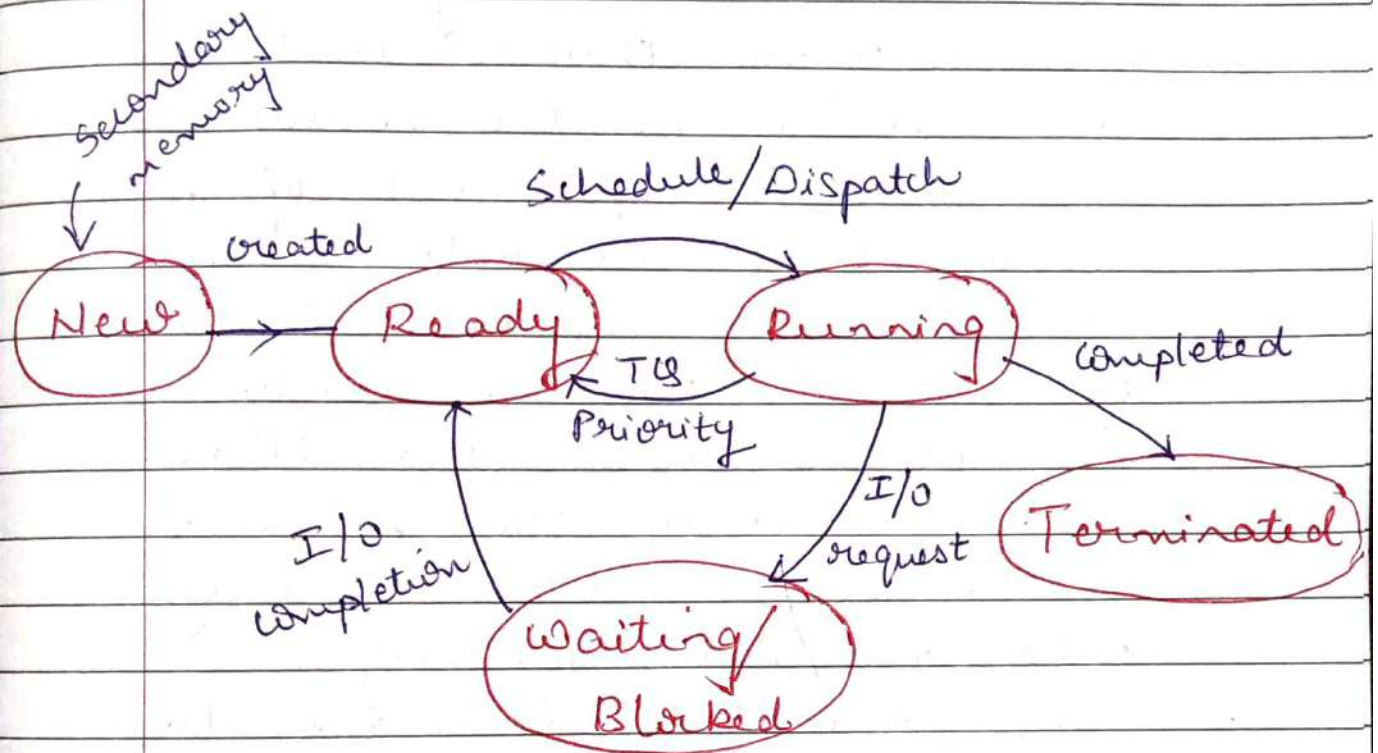 Secondary
memory
Schedule/Dispatch
created
New
Ready
Running
completed
TQ
Priority
I/O
request
Terminated
I/O
completion
Waiting/
Blocked